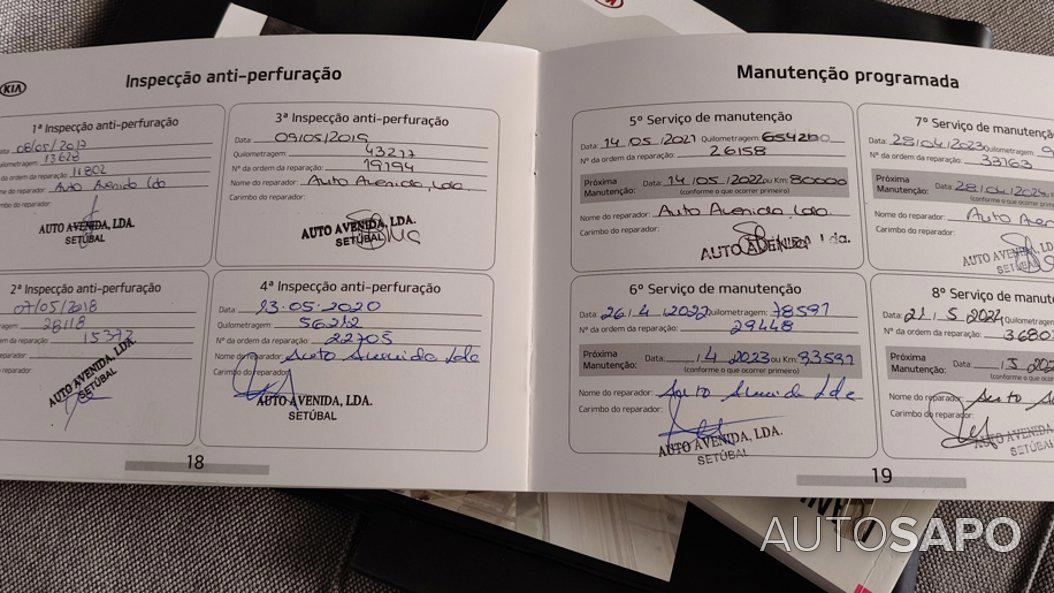 KIA
Inspecção anti-perfuração
1ª Inspecção anti-perfuração
08/05/2017
Quilometragem: 13628
da ordem da reparação: 11802
do reparador: Auto Avenida Lda
Carimbo do reparador:
AUTO AVENIDA, LDA.
SETÚBAL
3ª Inspecção anti-perfuração
Data: 09/05/2019
Quilometragem: 43277
Nº da ordem da reparação: 19194
Nome do reparador: Auto Avenida, Lda
Carimbo do reparador:
AUTO AVENIDA, LDA.
SETÚBAL
2ª Inspecção anti-perfuração
07/05/2018
28118
15373
reparador:
AUTO AVENIDA, LDA.
SETÚBAL
4ª Inspecção anti-perfuração
Data: 13.05.2020
Quilometragem: 56212
Nº da ordem da reparação: 22705
Nome do reparador: Auto Avenida Lda
Carimbo do reparador:
AUTO AVENIDA, LDA.
SETÚBAL
18
Manutenção programada
5º Serviço de manutenção
Data: 14.05.2021 Quilometragem:
Nº da ordem da reparação: 26158
Próxima Manutenção: Data: 14/05/2022 ou Km: 80000
(conforme o que ocorrer primeiro)
Nome do reparador: Auto Avenida, Lda.
Carimbo do reparador:
AUTO AVENIDA Lda.
7º Serviço de manutenção
Data: 28/04/2023 Quilometragem: 9
Nº da ordem da reparação: 33163
Próxima Manutenção: Data: 28/04/2024
(conforme o que ocorrer prim
Nome do reparador: Auto Aven
Carimbo do reparador:
AUTO AVENIDA, LD
SETÚBAL
6º Serviço de manutenção
Data: 26/4/2022 Quilometragem: 78597
Nº da ordem da reparação: 29448
Próxima Manutenção: Data: /4/2023 ou Km: 93597
(conforme o que ocorrer primeiro)
Nome do reparador: Auto Avenida Lda
Carimbo do reparador:
AUTO AVENIDA, LDA.
SETÚBAL
8º Serviço de manut
Data: 21/5/2024 Quilometragem
Nº da ordem da reparação: 3680
Próxima Manutenção: Data: /5/202
(conforme o que ocorrer
Nome do reparador: Auto A
Carimbo do reparador:
AUTO AVENIDA
SETÚBAL
19
AUTOSAPO